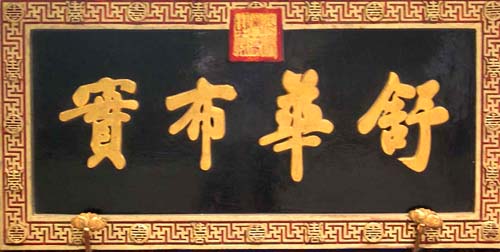 舒華布實